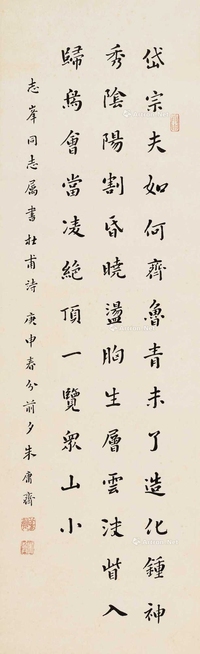 岱宗夫如何齊魯青未了造化鍾神
秀陰陽割昏曉盪胸生層雲決眥入
歸鳥會當凌絕頂一覽眾山小
志峯同志属書杜甫詩 庚申春分前夕朱庸齋